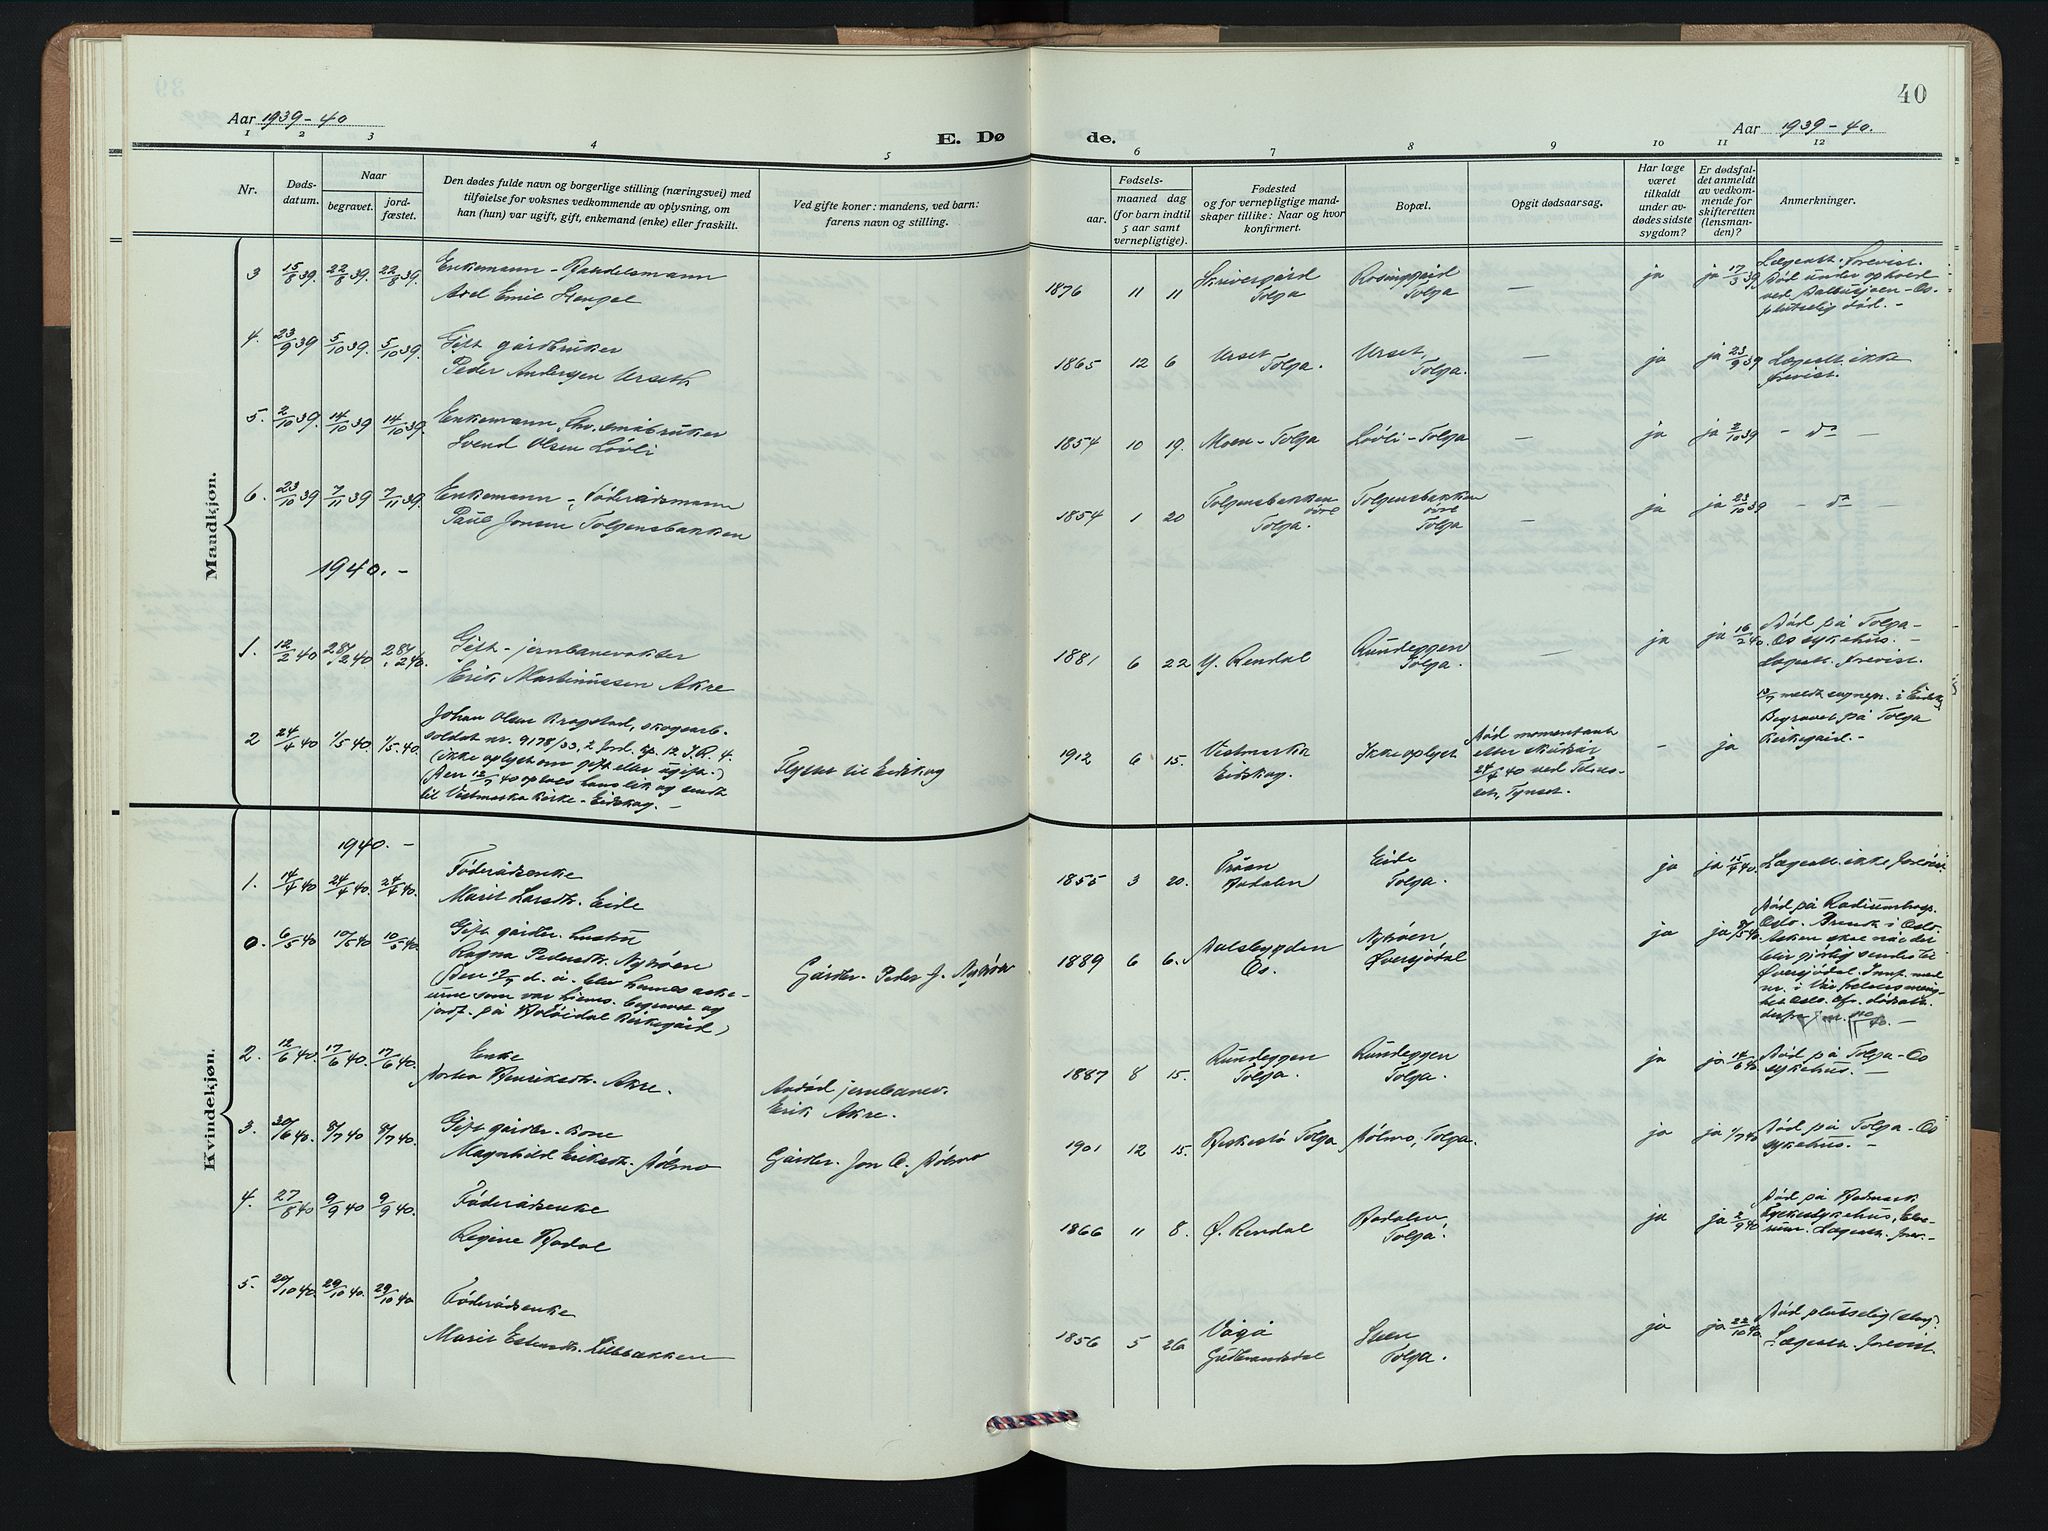 40
Aar 1939-40
E. Dø de.
Aar 1939-40.
1 2 3 4 5 6 7 8 9 10 11 12
Nr.
Dødsdatum.
Naar
begravet.
jordfæstet.
Den dødes fulde navn og borgerlige stilling (næringsvei) med
tilføielse for voksnes vedkommende av oplysning, om
han (hun) var ugift, gift, enkemand (enke) eller fraskilt.
Ved gifte koner: mandens, ved barn:
farens navn og stilling.
Fødsels-
aar.
maaned dag
(for barn indtil
5 aar samt
vernepligtige).
Fødested
og for vernepligtige mand-
skaper tillike: Naar og hvor
konfirmert.
Bopæl.
Opgit dødsaarsag.
Har læge
været
tilkaldt
under av-
dødes sidste
sygdom?
Er dødsfal-
det anmeldt
av vedkom-
mende for
skifteretten
(lensman-
den)?
Anmerkninger.
Mandkjøn.
3 15/8 39 22/8 39. 22/8 39. Enkemann - Handelsmann
Axel Emil Stengel
1876 11 11 Skrivergård Tolga Rosinggård Tolga — ja ja 17/8 39 Lægeatt. forevist.
Død under ophold
ved Dalbusjøen - Os.
plutselig død. -
4. 23/9 39 5/10 39. 5/10 39. Gift gårdbruker
Peder Andersen Urseth
1865 12 6 Urset Tolga. Urset, Tolga. — ja ja 23/9 39 Lægeatt. ikke
forevist.
5. 2/10 39. 14/10 39 14/10 39. Enkemann, fhv. småbruker
Svend Olsen Løvli
1854 10 19. Moen - Tolga Løvli - Tolga — ja ja 2/10 39 - do -
6. 23/10 39 7/11 39 7/11 39. Enkemann - Føderådsmann
Paul Jonsen Tolgensbakken
1854 1 20 Tolgensbakken øvre Tolga. Tolgensbakken øvre Tolga — ja ja 23/10 39 - do -
1940. -
1. 12/2 40 28/2 40 28/2 40. Gift - jernbanevokter
Erik Martinussen Akre
1881 6 22 Y. Rendal Rundeggen Tolga. — ja ja 16/2 40. Død på Tolga-
Os sykehus. -
Lægeatt. forevist.
2 24/4 40 1/5 40. 1/5 40. Johan Olsen Bragstad, skogsarb.
soldat nr. 9178/33, 2 ford. kp. 12 I.R. 4.
(ikke oplyst om gift eller ugift.)
(Den 13/7 40 optoes hans lik og sendt
til Vestmarka kirke - Eidskog. -
Flyttet til Eidskog
1912 6 15. Vestmarka Eidskog. Ikke oplyst Død momentant
etter skuddsår
24/4 40 ved Tolns-
set, Tynset.
- ja 13/7 meldt sognepr. i Eidskog
Begravet på Tolga
Kirkegård. -
Kvindekjøn.
1940. -
1. 14/4 40 24/4 40. 24/4 40. Føderådsenke
Marit Larsdtr. Eide
1855 3 20. Trøan Hodalen Eide Tolga. ja ja 15/4 40. Lægeatt. ikke forevist
0. 6/5 40 10/5 40. 10/5 40. Gift gårdbr. hustru
Ragna Pedersdtr. Nytrøen
(Den 12/7 d. å. blev hennes aske-
urne som var hjems. begravet og
jordf. på Holøidal Kirkegård)
Gårdbr. Peder J. Nytrøen
1889 6 6. Dalsbygden Os. Nytrøen Øversjødal ja ja 8/5 40. Død på Radiumhosp.
Oslo. Brendt i Oslo.
Asken skal når det
blir gjørlig sendes til
Øversjødal. Innf. med
nr. i Vår frelsers menig-
het Oslo.
2. 12/6 40. 17/6 40. 17/6 40. Enke
Dortea Henriksdtr. Akre.
Avdød jernbanev.
Erik Akre.
1887 8 15. Rundeggen Tolga. Rundeggen Tolga. ja ja 14/6 40 Død på Tolga-Os
sykehus. -
3. 30/6 40. 8/7 40 8/7 40. Gift gårdbr. kone
Magnhild Eriksdtr. Dølmo
Gårdbr. Jon O. Dølmo
1901 12 15. Kirkestø Tolga Dølmo, Tolga. ja ja 1/7 40 Død på Tolga-Os
sykehus. -
4. 27/8 40 9/9 40 9/9 40. Føderådsenke
Regine Hodal
1866 11 8. Ø. Rendal Hodalen, Tolga. ja ja 2/9 40 Død på Hedmark
fylkessykehus, Elve-
rum. Lægeatt. forev. -
5. 20/10 40. 29/10 40. 29/10 40 Føderådsenke
Marit Estensdtr. Lillebakken
1856 5 26 Vågå Gudbrandsdal Steen Tolga. ja ja 22/10 40. Død plutselig (slag).
Lægeattr. forevist.